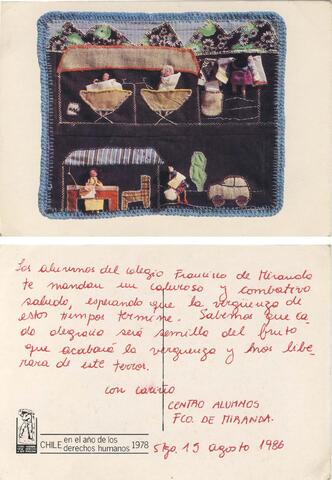 Los alumnos del colegio Francisco de Miranda
te mandan un caluroso y combativo
saludo, esperando que la verguenza de
estos tiempos termine. Sabemos que ca
da degracia será semilla del fruto
que acabará la verguenza y nos libe
rara de este terror.
con cariño
CENTRO ALUMNOS
FCO. DE MIRANDA.
CHILE en el año de los derechos humanos 1978
Stgo. 15 agosto 1986